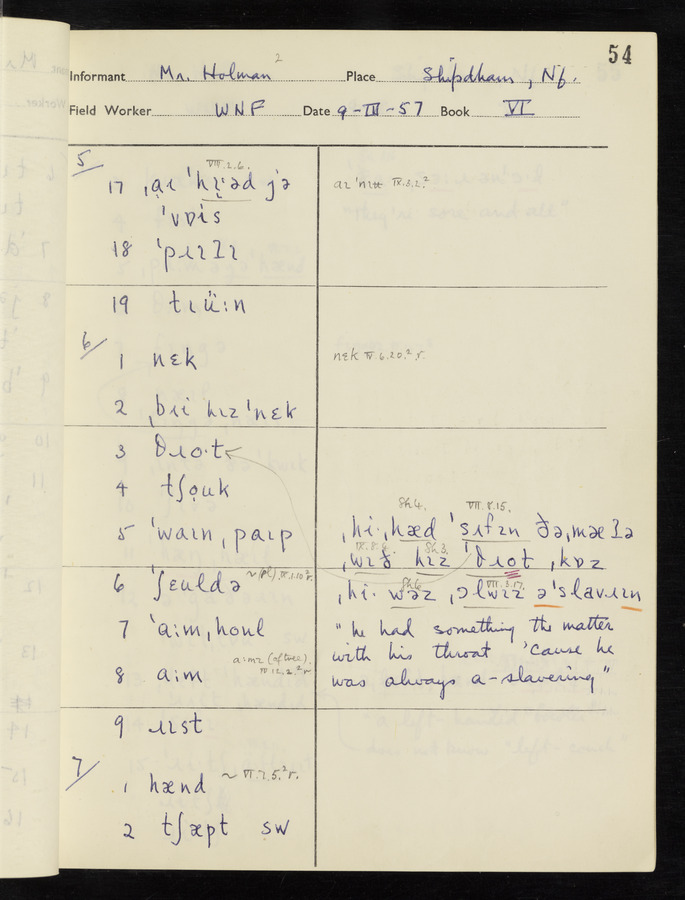 54
2
Informant Mr. Holman Place Shipdham, Nf.
Field Worker WNF Date 9-III-57 Book VI
5
VII.2.6.
17 ˌaɪ ˈhɪəd jə
ˈvɒɪs
aɪ ˈnɪtt IX.3.2.²
18 ˈpɹɪɪ
19 tɹü:n
6
1 nɛk
nɛk IV.6.20.² r.
2 ˌbɹi hɪz ˈnɛk
3 θɹo·t
4 tʃo̤uk
Sh.4. VII.8.15.
5 ˈwaɪn ˌpaɪp
ˌhi· ˌhæd ˈsɪfɪn ðə ˌmæ
IX.8. Sh.3.
ˌwɪð hɪz ˈθɹot ˌkɒz
6 ˈʃɛuldə ~ (pl) IX.1.10² r.
Sh.6. VII.3.17.
ˌhi· wəz ˌɔlwɪz əˈslavɹɪn
7 ˈa:m ˌhoul
"he had something the matter
with his throat 'cause he
was always a-slavering"
a:mz (of tree).
IV.12.2.² r
8 a:m
9 ɹɪst
7
1 hænd ~ VI.7.5.² r.
2 tʃæpt sw